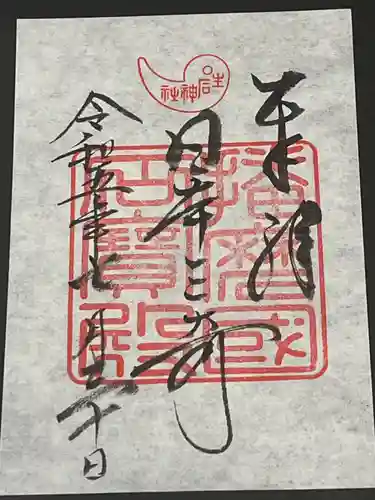 生石神社
奉拝
日本三奇
令和五年七月三十日